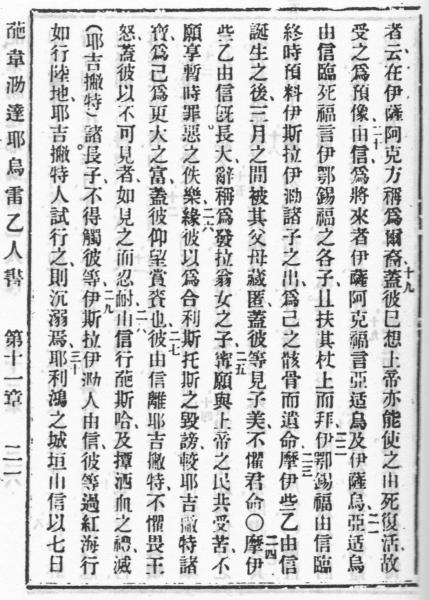 者云在伊薩阿克方稱爲爾裔十九蓋彼已想上帝亦能使之由死復活故
受之爲預像二十由信爲將來者伊薩阿克福言亞适烏及伊薩烏二一亞适烏
由信臨死福言伊鄂錫福之各子且扶其杖上而拜二二伊鄂錫福由信臨
終時預料伊斯拉伊泐諸子之出爲己之骸骨而遺命二三摩伊些乙由信
誕生之後三月之間被其父母藏匿蓋彼等見子美不懼君命○二四摩伊
些乙由信既長大辭稱爲發拉翁女之子二五寗願與上帝之民共受苦不
願享暫時罪惡之佚樂二六緣彼以爲合利斯托斯之毀謗較耶吉撇特諸
寶爲己爲更大之富蓋彼仰望賞賚也二七彼由信離耶吉撇特不懼畏王
怒蓋彼以不可見者如見之而忍耐二八由信行葩斯哈及撢洒血之禮滅
(耶吉撇特)諸長子不得觸彼等二九伊斯拉伊泐人由信彼等過紅海行
如行陸地耶吉撇特人試行之則沉溺焉三十耶利鴻之城垣由信以七日
葩韋泐達耶烏雷乙人書 第十一章